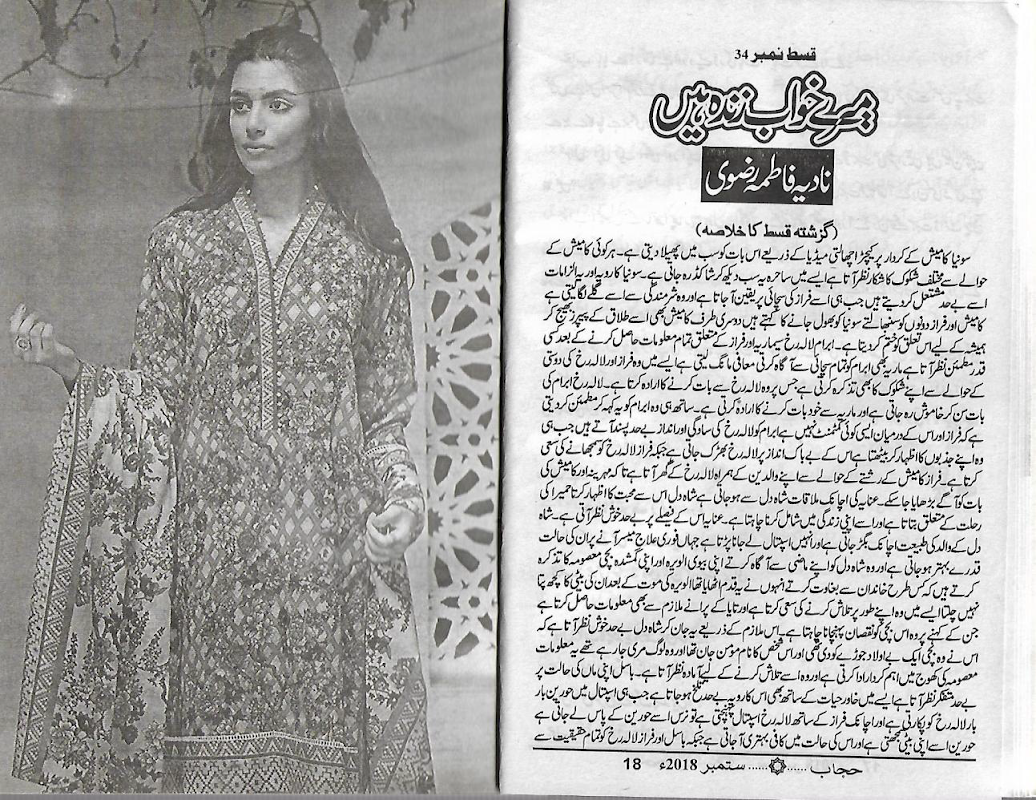 قسط نمبر 34
میرے خواب زندہ ہیں
نادیہ فاطمہ رضوی
(گزشتہ قسط کا خلاصہ)
سونیا کامیش کے کردار پر کیچڑ اچھالتی میڈیا کے ذریعے اس بات کو سب میں پھیلا دیتی ہے۔ ہر کوئی کامیش کے
حوالے سے مختلف شکوک کا شکار نظر آتا ہے ایسے میں ساحرہ یہ سب دیکھ کر شاکڈ رہ جاتی ہے۔ سونیا کا رویہ اور یہ الزامات
اسے بے حد مشتعل کردیتے ہیں جب ہی اسے فراز کی سچائی پر یقین آجاتا ہے اور وہ شرمندگی سے اسے گلے لگالیتی ہے
کامیش اور فراز دونوں کو سنبھالتے سونیا کو بھول جانے کا کہتے ہیں دوسری طرف کامیش بھی اسے طلاق کے پیپرز بھیج کر
ہمیشہ کے لیے اس تعلق کو ختم کردیتا ہے۔ ابرام لالہ رخ سے ماریہ اور فراز کے متعلق تمام معلومات حاصل کرنے کے بعد کسی
قدر مطمئن نظر آتا ہے ماریہ بھی ابرام کو تمام سچائی سے آگاہ کرتی معافی مانگ لیتی ہے ایسے میں وہ فراز اور لالہ رخ کی دوستی
کے حوالے سے اپنے شکوک کا بھی تذکرہ کرتی ہے جس پر وہ لالہ رخ سے بات کرنے کا ارادہ کرتا ہے۔ لالہ رخ ابرام کی
بات سن کر خاموش رہ جاتی ہے اور ماریہ سے خود بات کرنے کا ارادہ کرتی ہے۔ ساتھ ہی وہ ابرام کو یہ کہہ کر مطمئن کردیتی
ہے کہ فراز اور اس کے درمیان ایسی کوئی کمٹمنٹ نہیں ہے ابرام کو لالہ رخ کی سادگی اور انداز بے حد پسند آتے ہیں جب ہی
وہ اپنے جذبوں کا اظہار کر بیٹھتا ہے اس کے بے باک انداز پر لالہ رخ بھڑک جاتی ہے جبکہ فراز لالہ رخ کو سمجھانے کی سعی
کرتا ہے۔ فراز کامیش کے رشتے کے حوالے سے اپنے والدین کے ہمراہ لالہ رخ کے گھر آتا ہے تاکہ مہرینہ اور کامیش کی
بات کو آگے بڑھایا جاسکے۔ عنایہ کی اچانک ملاقات شاہ دل سے ہوجاتی ہے شاہ دل اس سے محبت کا اظہار کرتا حمیرا کی
رحلت کے متعلق بتاتا ہے اور اسے اپنی زندگی میں شامل کرنا چاہتا ہے۔ عنایہ اس کے فیصلے پر بے حد خوش نظر آتی ہے۔ شاہ
دل کے والد کی طبیعت اچانک بگڑ جاتی ہے اور انہیں اسپتال لے جانا پڑتا ہے جہاں فوری علاج میسر آنے پر ان کی حالت
قدرے بہتر ہوجاتی ہے اور وہ شاہ دل کو اپنے ماضی سے آگاہ کرتے اپنی بیوی الویرہ اور اپنی گمشدہ بچی معصومہ کا تذکرہ
کرتے ہیں کہ کس طرح خاندان سے بغاوت کرتے انہوں نے یہ قدم اٹھایا تھا الویرہ کی موت کے بعد ان کی بیٹی کا کچھ پتا
نہیں چلتا ایسے میں وہ اپنے طور پر تلاش کرنے کی سعی کرتا ہے اور تایا کے پرانے ملازم سے بھی معلومات حاصل کرتا ہے
جن کے کہنے پر وہ اس بچی کو نقصان پہنچانا چاہتا ہے۔ اس ملازم کے ذریعے یہ جان کر شاہ دل بے حد خوش نظر آتا ہے کہ
اس نے وہ بچی ایک بے اولاد جوڑے کو دی تھی اور اس شخص کا نام مومن جان تھا اور وہ لوگ مری جارہے تھے یہ معلومات
معصومہ کی کھوج میں اہم کردار ادا کرتی ہے اور وہ اسے تلاش کرنے کے لیے آمادہ نظر آتا ہے۔ باسل اپنی ماں کی حالت پر
بے حد متفکر نظر آتا ہے ایسے میں خاور حیات کے ساتھ بھی اس کا رویہ بے حد تلخ ہوجاتا ہے جب ہی اسپتال میں حورین بار
بار لالہ رخ کو پکارتی ہے اور اچانک فراز کے ساتھ لالہ رخ اسپتال پہنچتی ہے تو نرس اسے حورین کے پاس لے جاتی ہے
حورین اسے اپنی بیٹی سمجھتی ہے اور اس کی حالت میں کافی بہتری آجاتی ہے جبکہ باسل اور فراز لالہ رخ کو تمام حقیقت سے
حجاب ...... ستمبر 2018ء 18